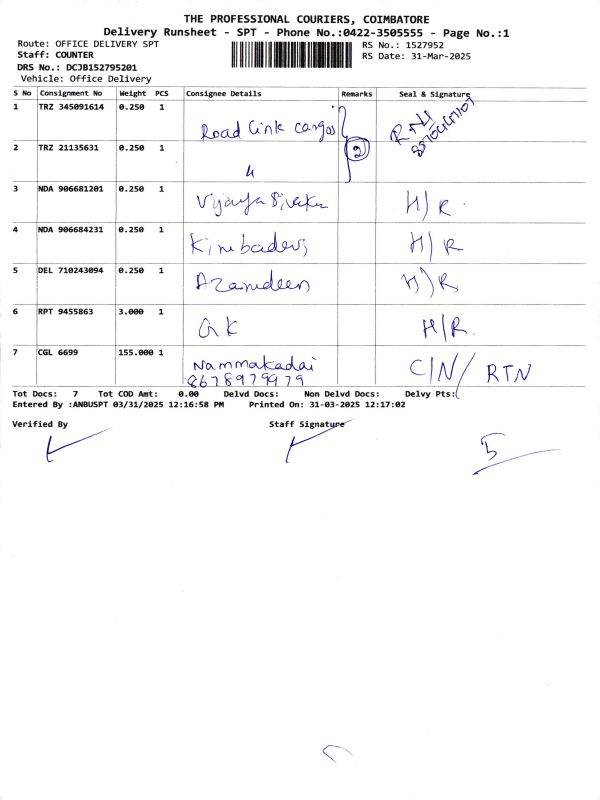 THE PROFESSIONAL COURIERS, COIMBATORE
Delivery Runsheet - SPT - Phone No.:0422-3505555 - Page No.:1
Route: OFFICE DELIVERY SPT RS No.: 1527952
Staff: COUNTER RS Date: 31-Mar-2025
DRS No.: DCJB152795201
Vehicle: Office Delivery
S No Consignment No Weight PCS Consignee Details Remarks Seal & Signature
1 TRZ 345091614 0.250 1 Road Link cargos
2 TRZ 21135631 0.250 1 " 2
3 NDA 906681201 0.250 1 H/R
4 NDA 906684231 0.250 1 H/R
5 DEL 710243094 0.250 1 Azarudeen H/R
6 RPT 9455863 3.000 1 GK H/R.
7 CGL 6699 155.000 1 Nammakadai C/N/ RTN
8678979979
Tot Docs: 7 Tot COD Amt: 0.00 Delvd Docs: Non Delvd Docs: Delvy Pts:
Entered By :ANBUSPT 03/31/2025 12:16:58 PM Printed On: 31-03-2025 12:17:02
Verified By Staff Signature
5